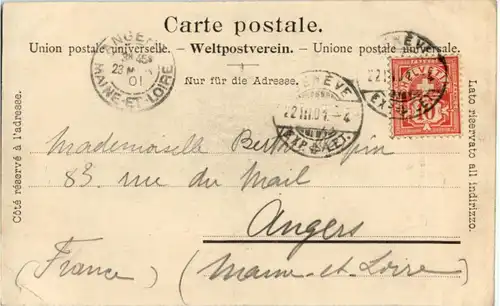 Carte postale.
Union postale universelle. – Weltpostverein. – Unione postale universale.
Nur für die Adresse.
Côté réservé à l'adresse.
Lato riservato all indirizzo.
ANGERS
23
01
MAINE-ET-LOIRE
GENÈVE
22.III.01.-4
(EXP. LET.)
GENÈVE
22.III
10
Mademoiselle Berthe
83 rue du Mail
Angers
(France) (Maine-et-Loire)